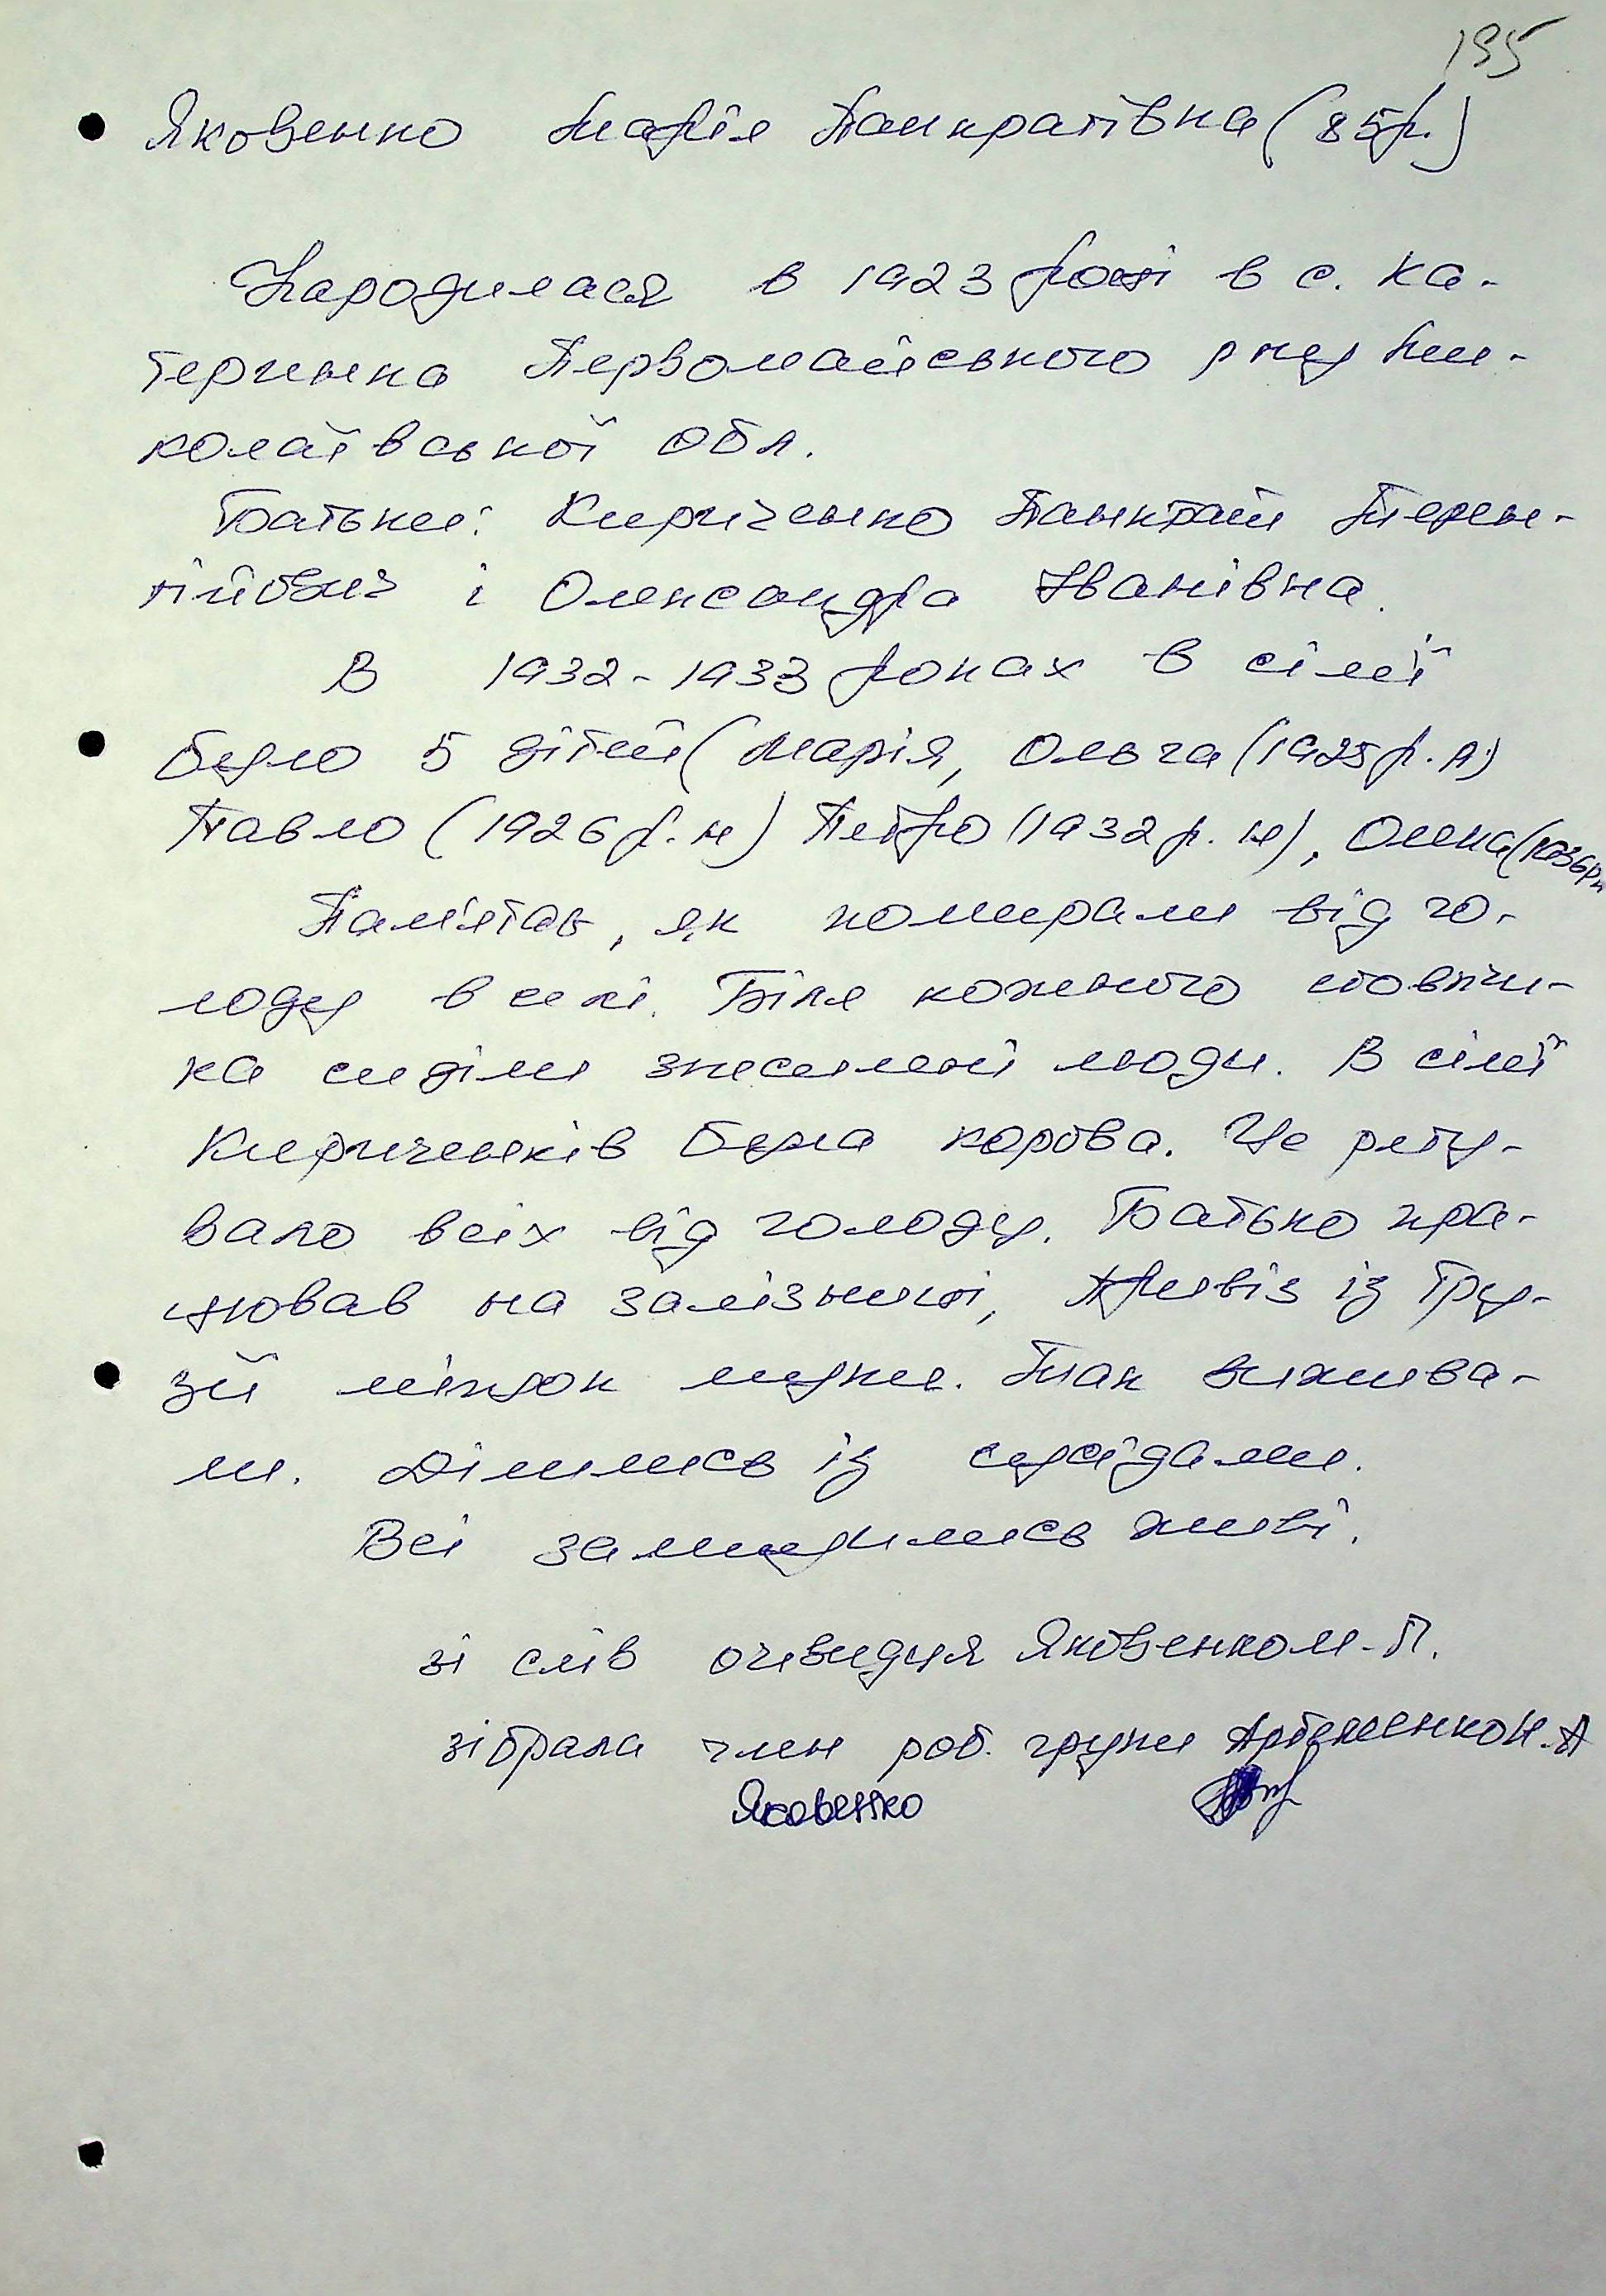 195
Яковенко Марія Панкратівна (85р.)
Народилася в 1923 році в с. Ка-
теринка Первомайського р-ну Ми-
колаївської обл.
Батьки: Кириченко Панкрат Терен-
тійович і Олександра Іванівна.
В 1932-1933 роках в сімї
було 5 дітей (Марія, Ольга (1925 р. н)
Павло (1926 р. н) Петро (1932 р. н), Олена (1936рн
Пам'ятає, як помирали від го-
лоду в селі. Біля кожного стовпчи-
ка сиділи знесилені люди. В сімї
Кириченків була корова. Це ряту-
вало всіх від голоду. Батько пра-
цював на залізниці, привіз із Гру-
зії мішок муки. Так вижива-
ли. Ділились із сусідами.
Всі залишились живі.
зі слів очевидця Яковенко М. П.
зібрала член роб. групи Артеменко Н. А
Яковенко